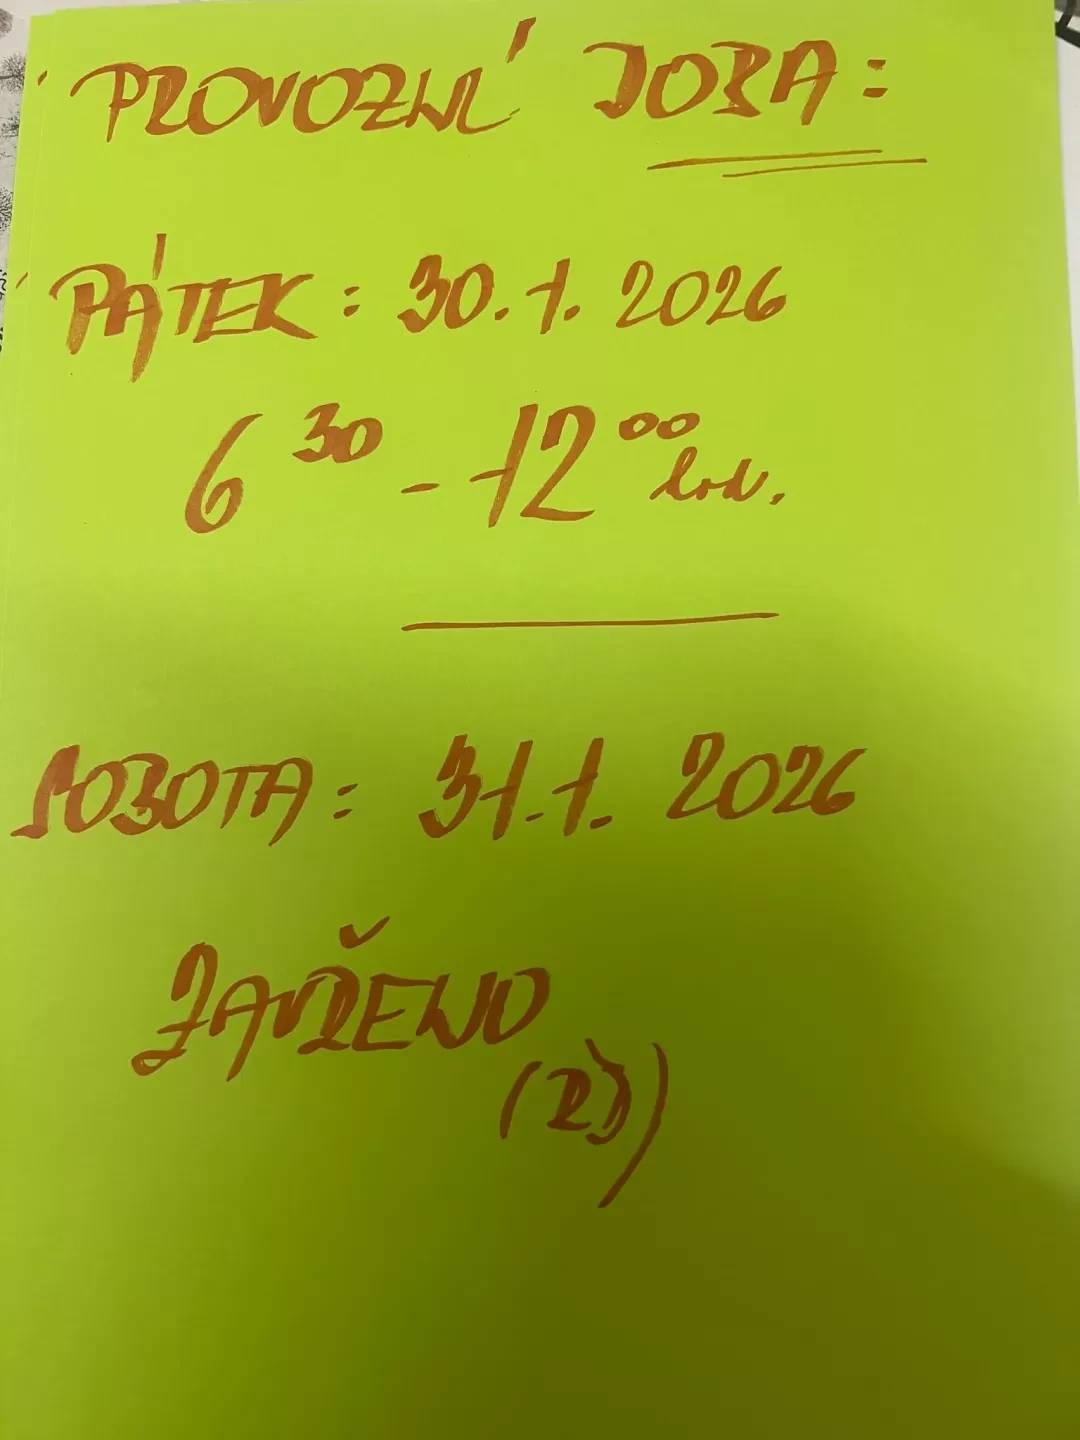 PROVOZNÍ DOBA:
PÁTEK: 30.1.2026
6³⁰ - 12⁰⁰ hod.
SOBOTA: 31.1.2026
ZAVŘENO
(ŘD)